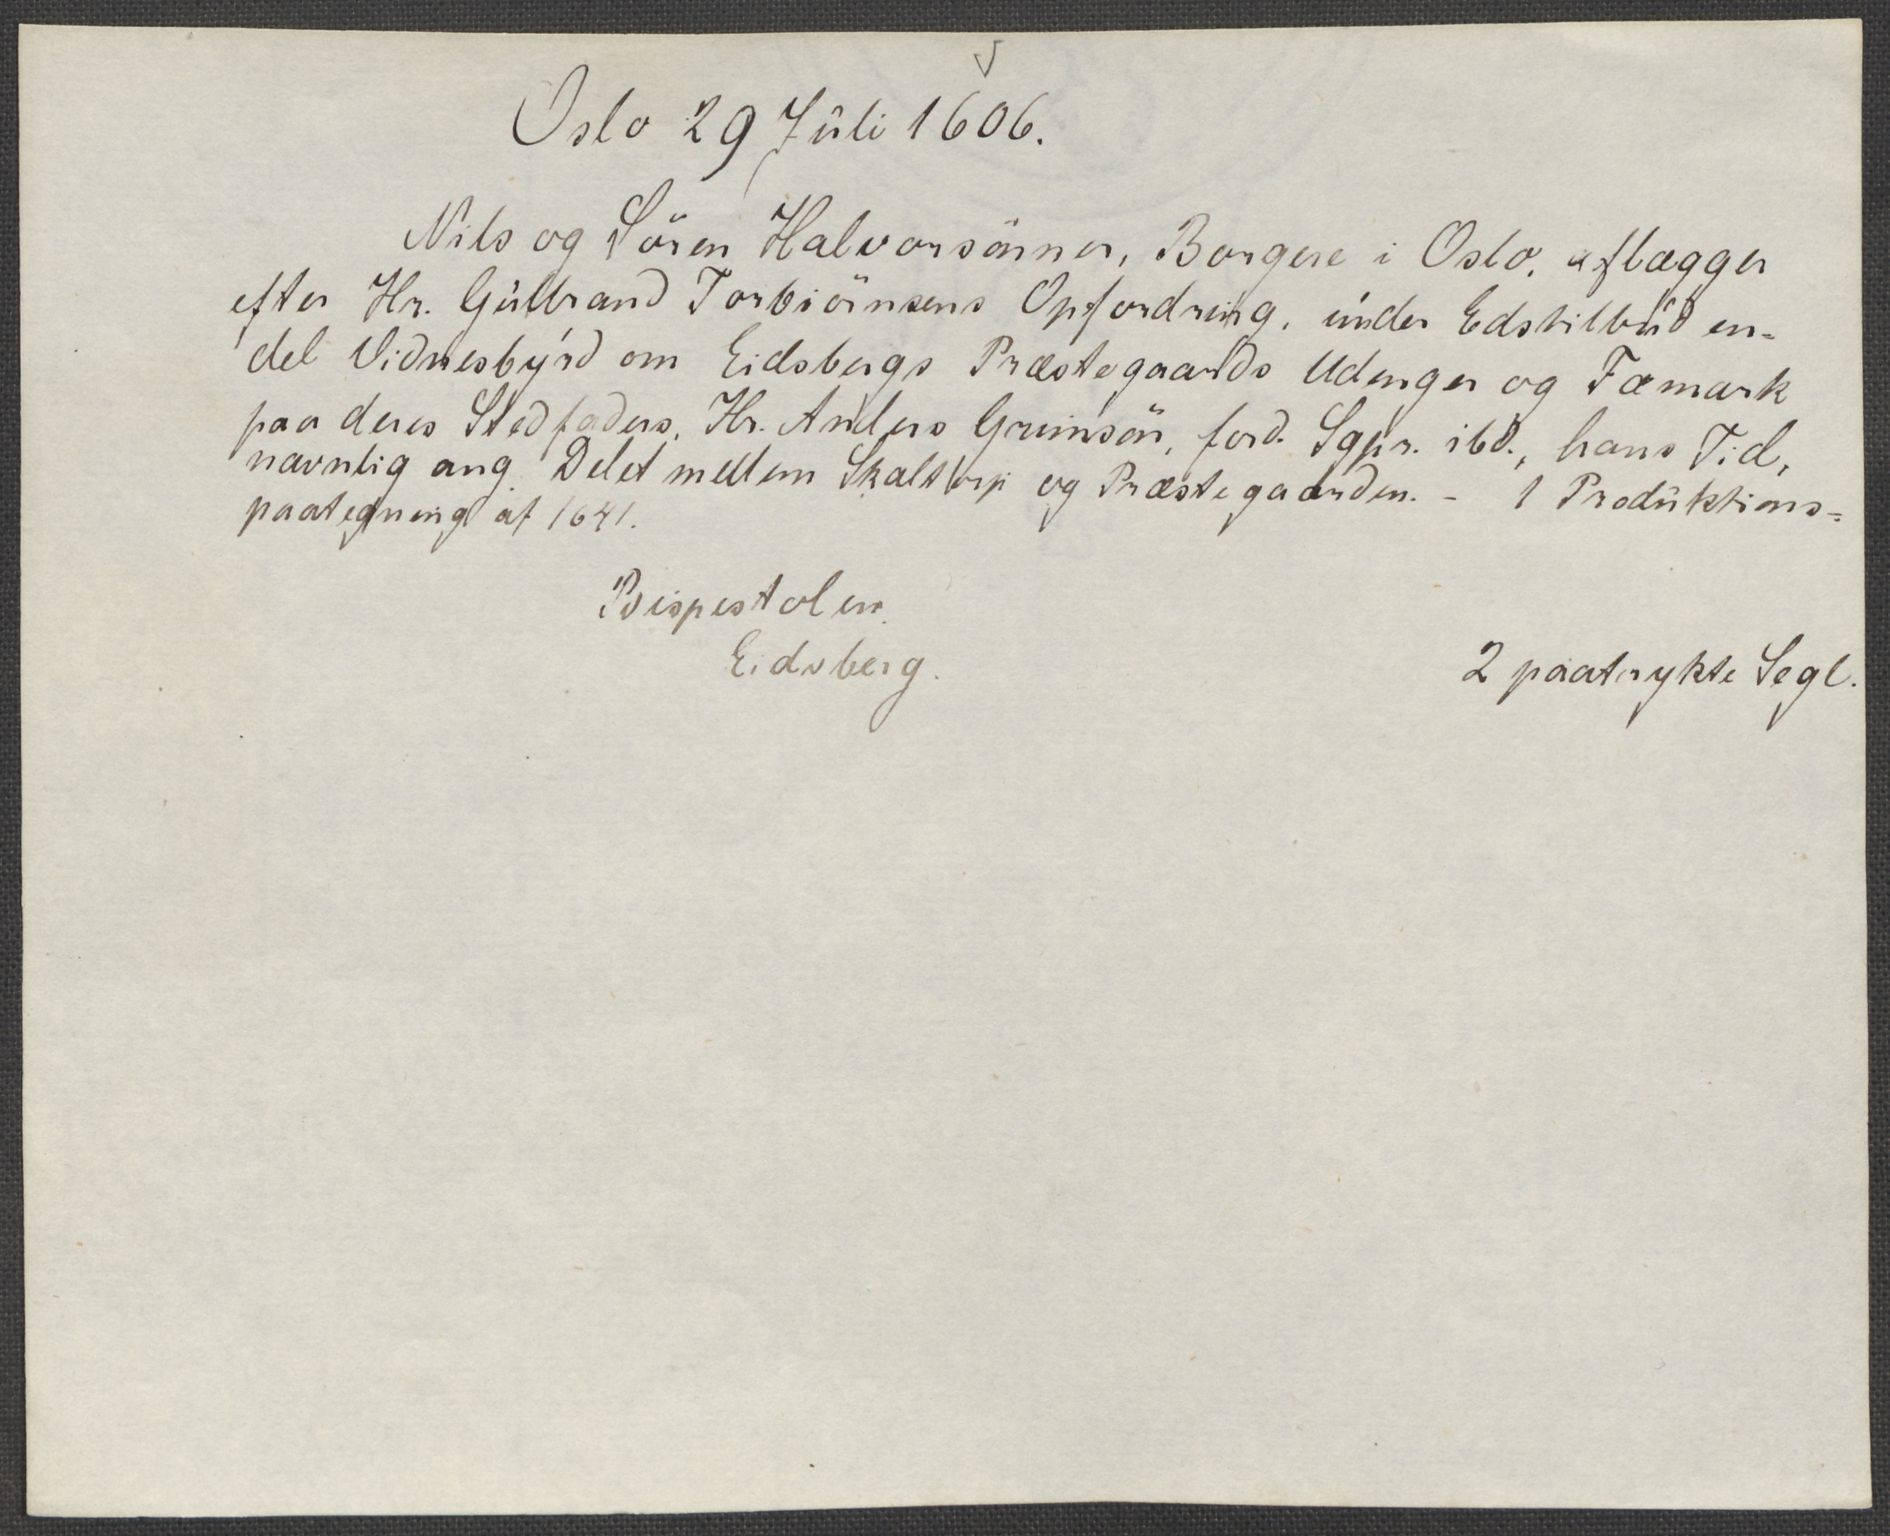 Oslo 29 Juli 1606.
Nils og Sören Halvorsönner, Borgere i Oslo, aflægger
efter Hr. Gulbrand Torbiörnsens Opfordring, under Edstilbud en-
del Vidnesbyrd om Eidsbergs Præstegaards Udenger og Fæmark
paa deres Stedfaders, Hr. Anders Grimsön, ford. Sgpr. ibd., hans Tid,
navnlig ang. Delet mellem Skaltorp og Præstegaarden. - 1 Produktions-
paategning af 1641.
Bispestolen
Eidsberg.
2 paatrykte Segl.